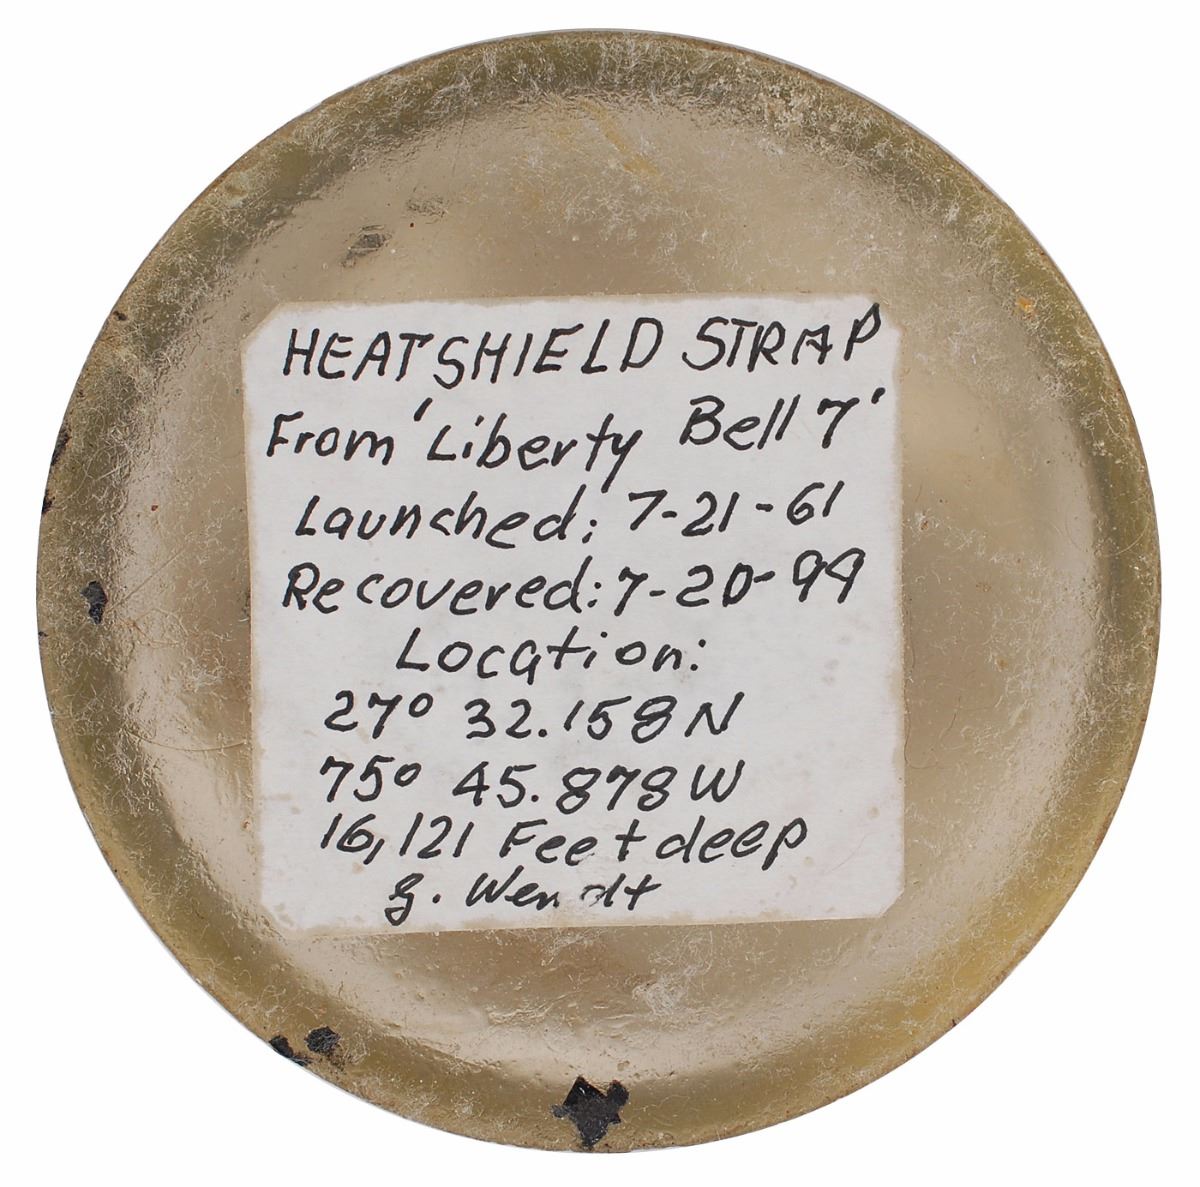 HEATSHIELD STRAP
From 'Liberty Bell 7'
Launched: 7-21-61
Recovered: 7-20-99
Location:
27° 32.158 N
75° 45.878 W
16,121 Feet deep
G. Wendt